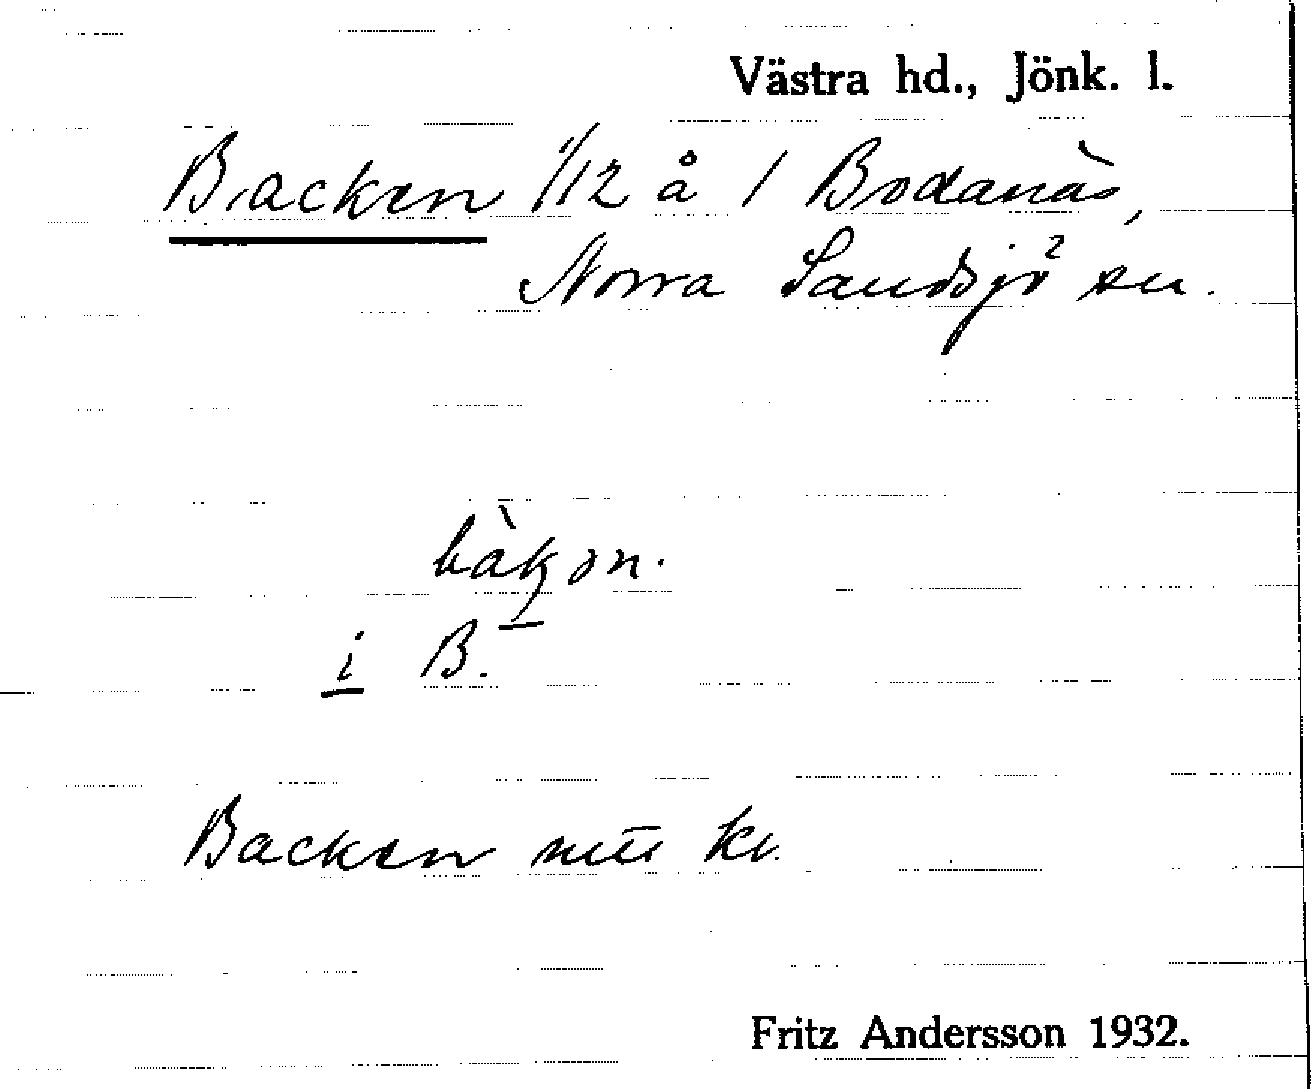 Västra hd., Jönk. l.
Backen 1/12 å 1 Bodanäs,
Norra Sandsjö sn.
bàkən.
i B.
Backen
Fritz Andersson 1932.